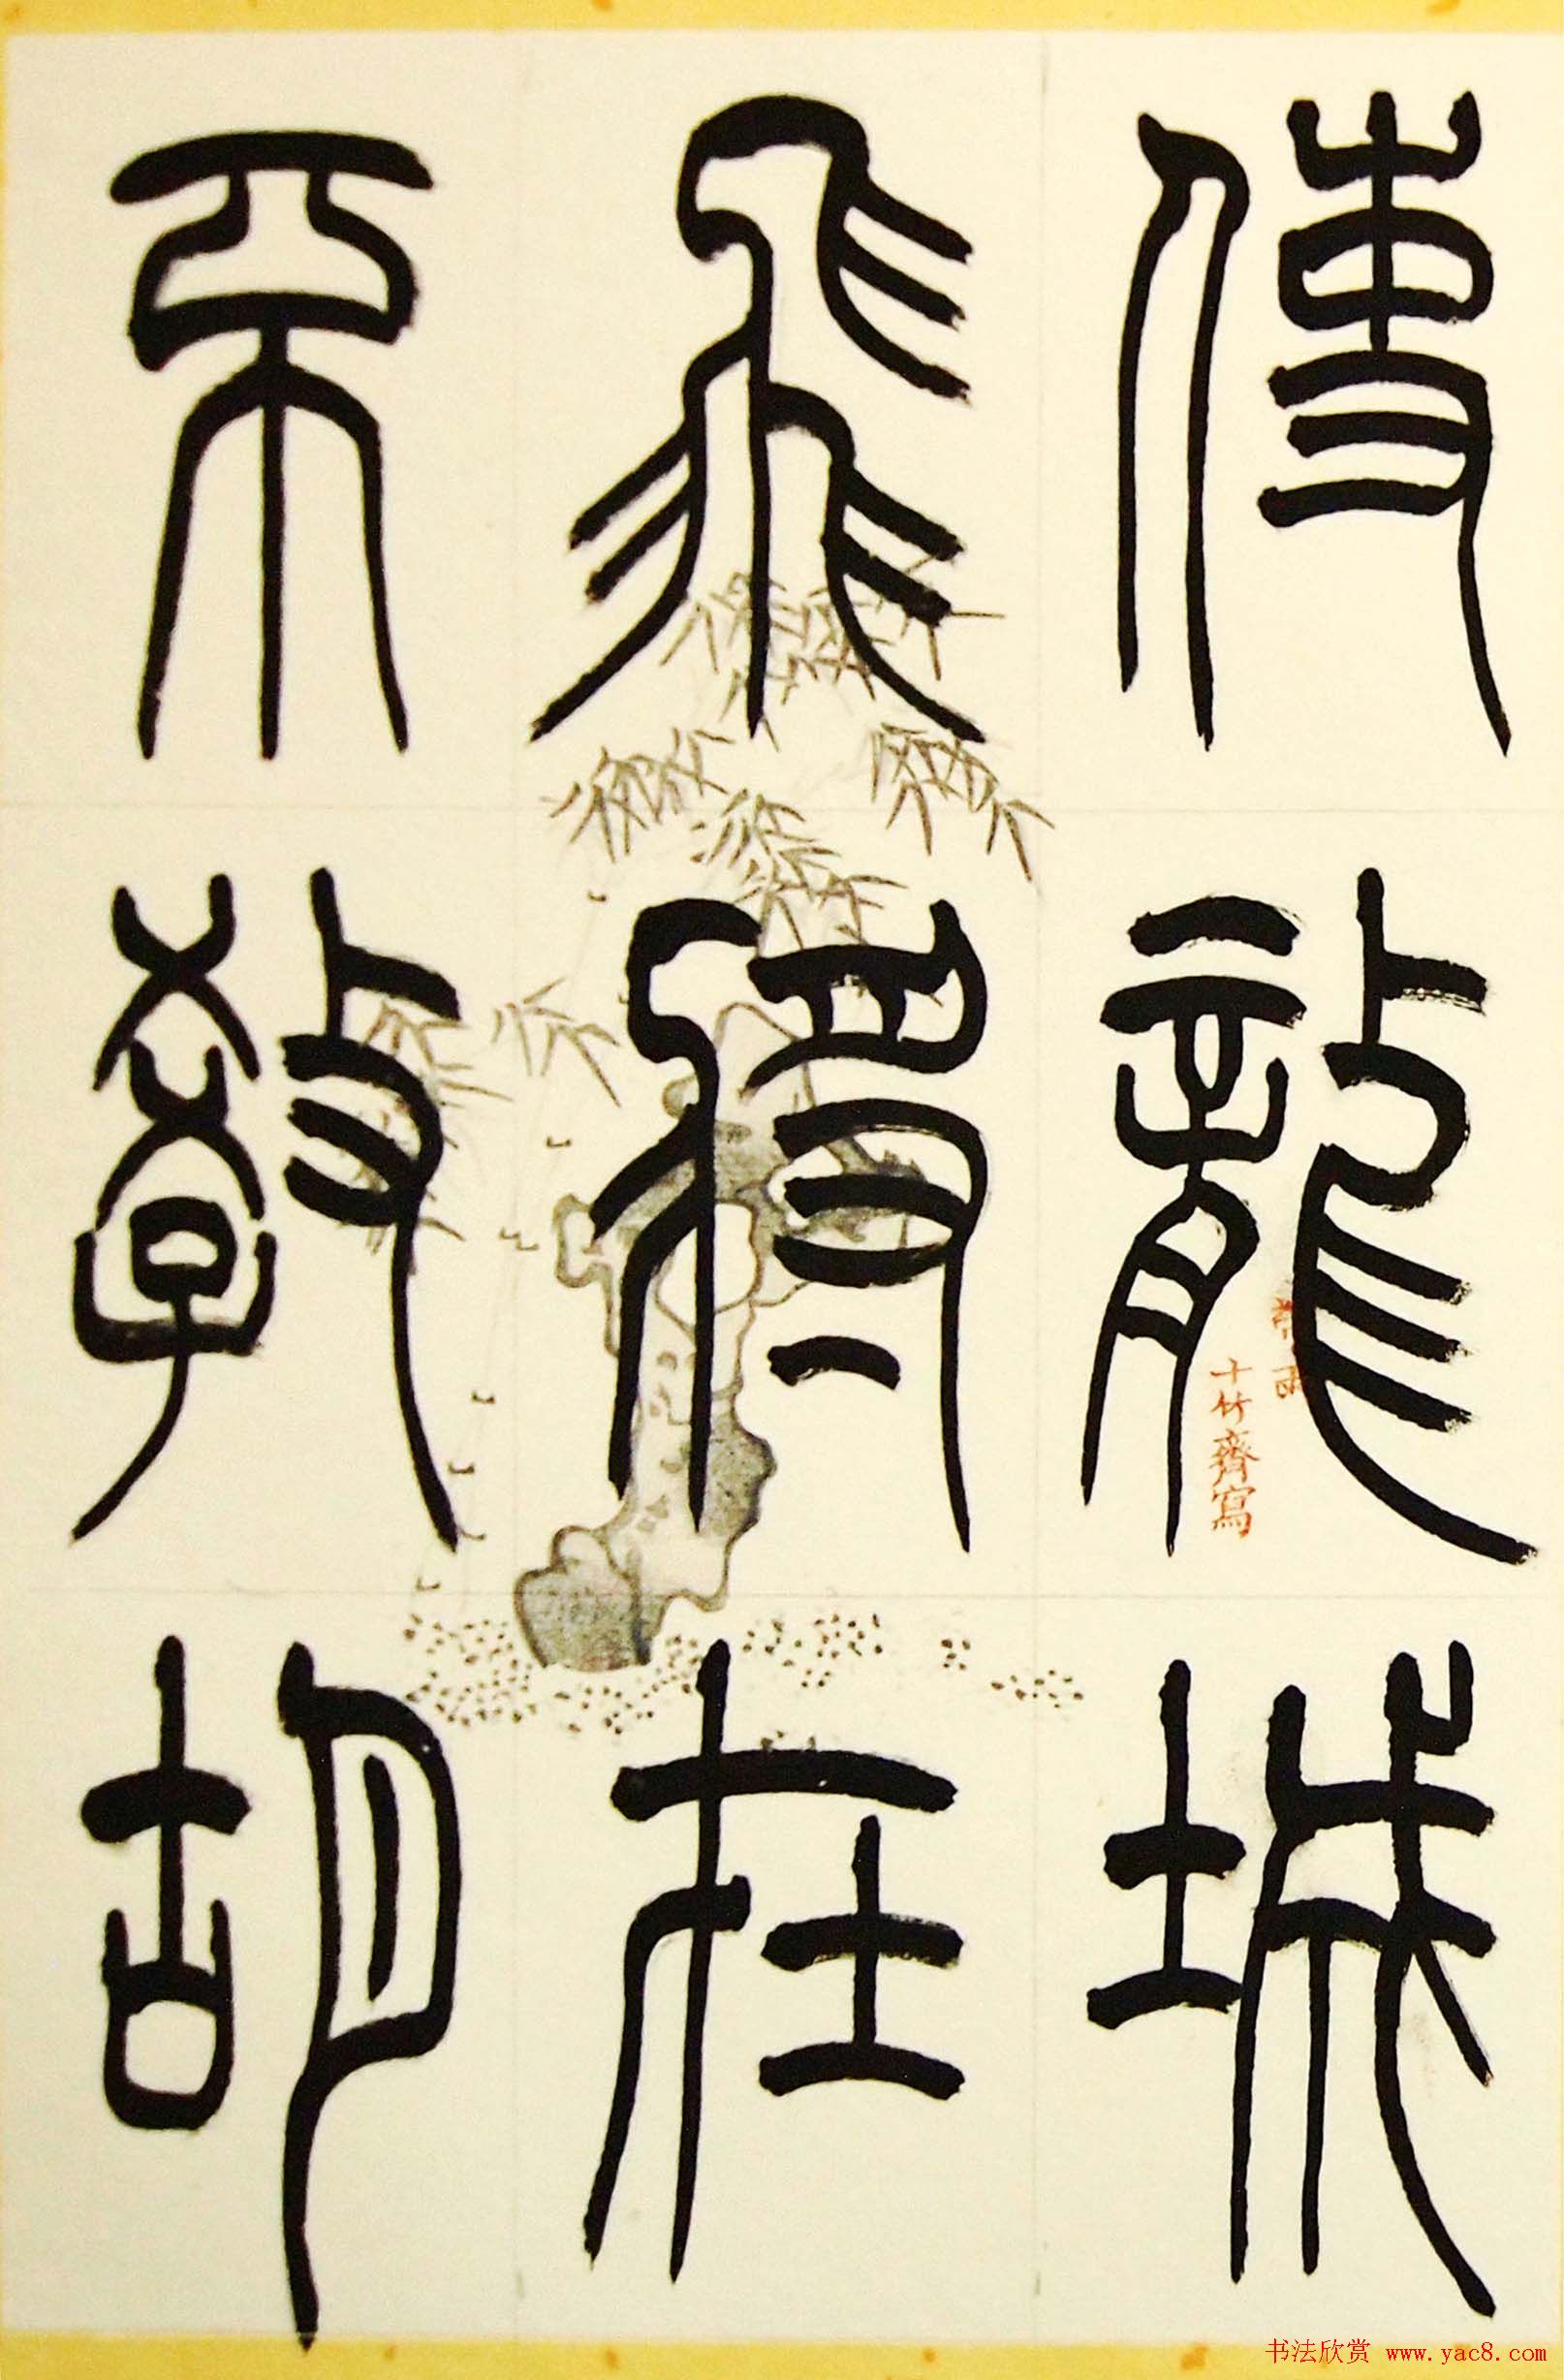 使龍城
飛將在
不教胡
十竹齋寫
书法欣赏 www.yac8.com